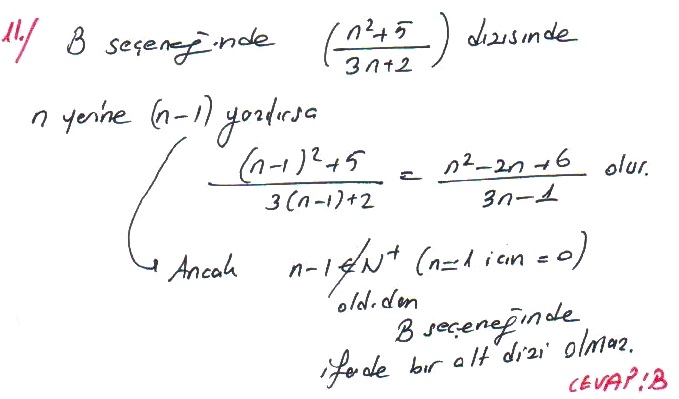 11./ B seçeneğinde ((n²+5)/(3n+2)) dizisinde
n yerine (n-1) yazılırsa
((n-1)²+5)/(3(n-1)+2) = (n²-2n+6)/(3n-1) olur.
Ancak n-1∉N⁺ (n=1 için = 0)
old.dan
B seçeneğinde
ifade bir alt dizi olmaz.
CEVAP:B